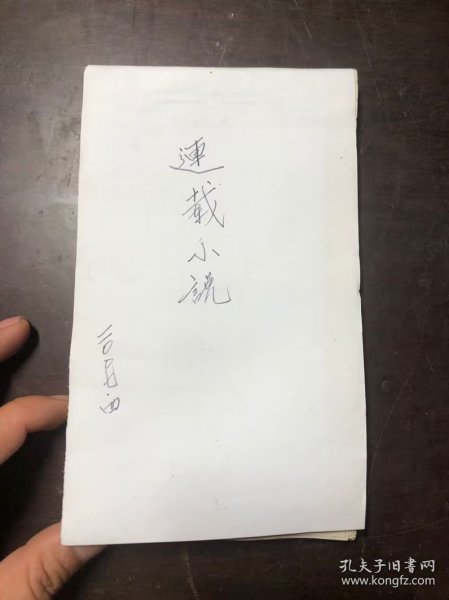 連載小説
孔夫子旧书网
www.kongfz.com